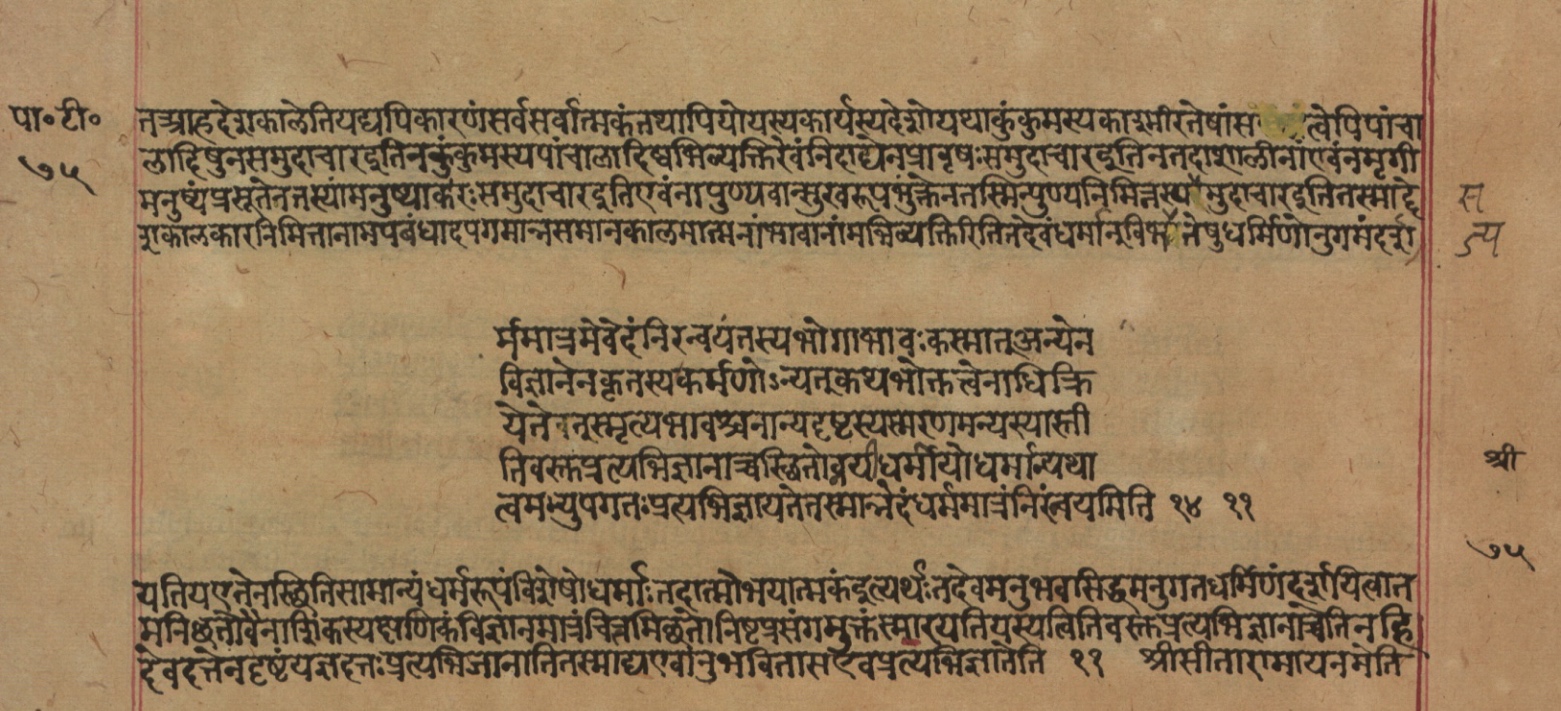 पा॰टी॰
७५
तत्राहदेशकालेतियद्यपिकारणंसर्वसर्वात्मकंतथापियोयस्यकार्यस्यदेशोयथाकुंकुमस्यकाश्मीरतेषांस त्वेपिपांचा
लादिषुनसमुदाचारइतिनकुंकुमस्यपांचालादिष्वभिव्यक्तिरेवंनिदाघेनप्रावृषःसमुदाचारइतिनतदाशालीनांएवंनमृगी
मनुष्यंप्रसूतेनतस्यांमनुष्याकारःसमुदाचारइतिएवंनापुण्यवान्सुखरूपंभुंक्तेनतस्मिन्पुण्यनिमित्तस्य मुदाचारइतितस्माद्दे
शकालकारनिमित्तानामपबंधादपगमान्नसमानकालमात्मनांभावानांमभिव्यक्तिरितितदेवंधर्मानुविभ तेषुधर्मिणोनुगमंदर्श
स
ज्य
र्ममात्रमेवेदंनिरन्वयंतस्यभोगाभावःकस्मात्अन्येन
विज्ञानेनकृतस्यकर्मणोऽन्यत्कथंभोक्तृत्वेनाधिक्रि
येतेवतत्स्मृत्यभावश्चनान्यदृष्टस्यस्मरणमन्यस्यास्ती
तिवस्तुप्रत्यभिज्ञानाच्चस्थितोन्वयीधर्मीयोधर्मान्यथा
त्वमभ्युपगतःप्रत्यभिज्ञायतेतस्मान्नेदंधर्ममात्रंनिरन्वयमिति १४ ११
श्री
७५
यतियएतेनस्थितिसामान्यंधर्मरूपंविशेषोधर्माःतदात्मोभयात्मकंइत्यर्थःतदेवमनुभवसिद्धमनुगतधर्मिणंदर्शयित्वात
मनिछतोवैनाशिकस्यक्षणिकंविज्ञानमात्रंचित्तमिछतोनिष्टप्रसंगमुक्तंस्मारयतियस्यत्वितिवस्तुप्रत्यभिज्ञानाच्चेतिनहि
देवदत्तेनदृष्टंयज्ञदत्तःप्रत्यभिजानातितस्माद्यएवानुभवितासएवप्रत्यभिज्ञातेति ११ श्रीसीतारामायनमेति